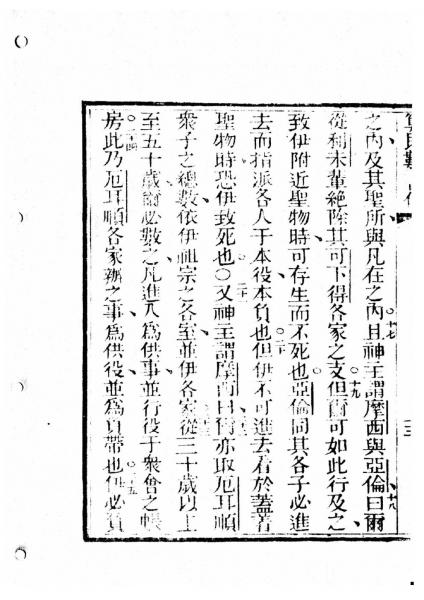 之內及其聖所與凡在之內且神主謂摩西與亞倫曰爾
從利未輩絕除其可下得各家之支但爾可如此行及之
致伊附近聖物時可存生而不死也亞倫同其各子必進
去而指派各人于本役本負也但伊不可進去看於蓋着
聖物時恐伊致死也〇又神主謂摩西曰爾亦取厄耳順
衆子之總數依伊祖宗之各室並伊各家從三十歲以上
至五十歲爾必數之凡進入為供事並行役于衆會之帳
房此乃厄耳順各家辦之事為供役並為負帶也伊必負